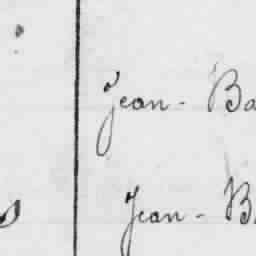 Jean - Ba
Jean - B